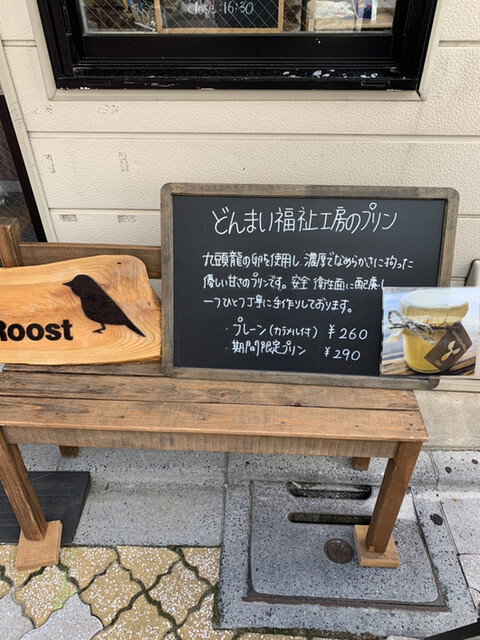 close: 16:30
どんまい福祉工房のプリン
九頭龍の卵を使用し、濃厚でなめらかさに拘った
優しい甘さのプリンです。安全・衛生面に配慮し
一つひとつ丁寧に手作りしております。
・プレーン(カラメル付) ¥260
・期間限定プリン ¥290
Roost